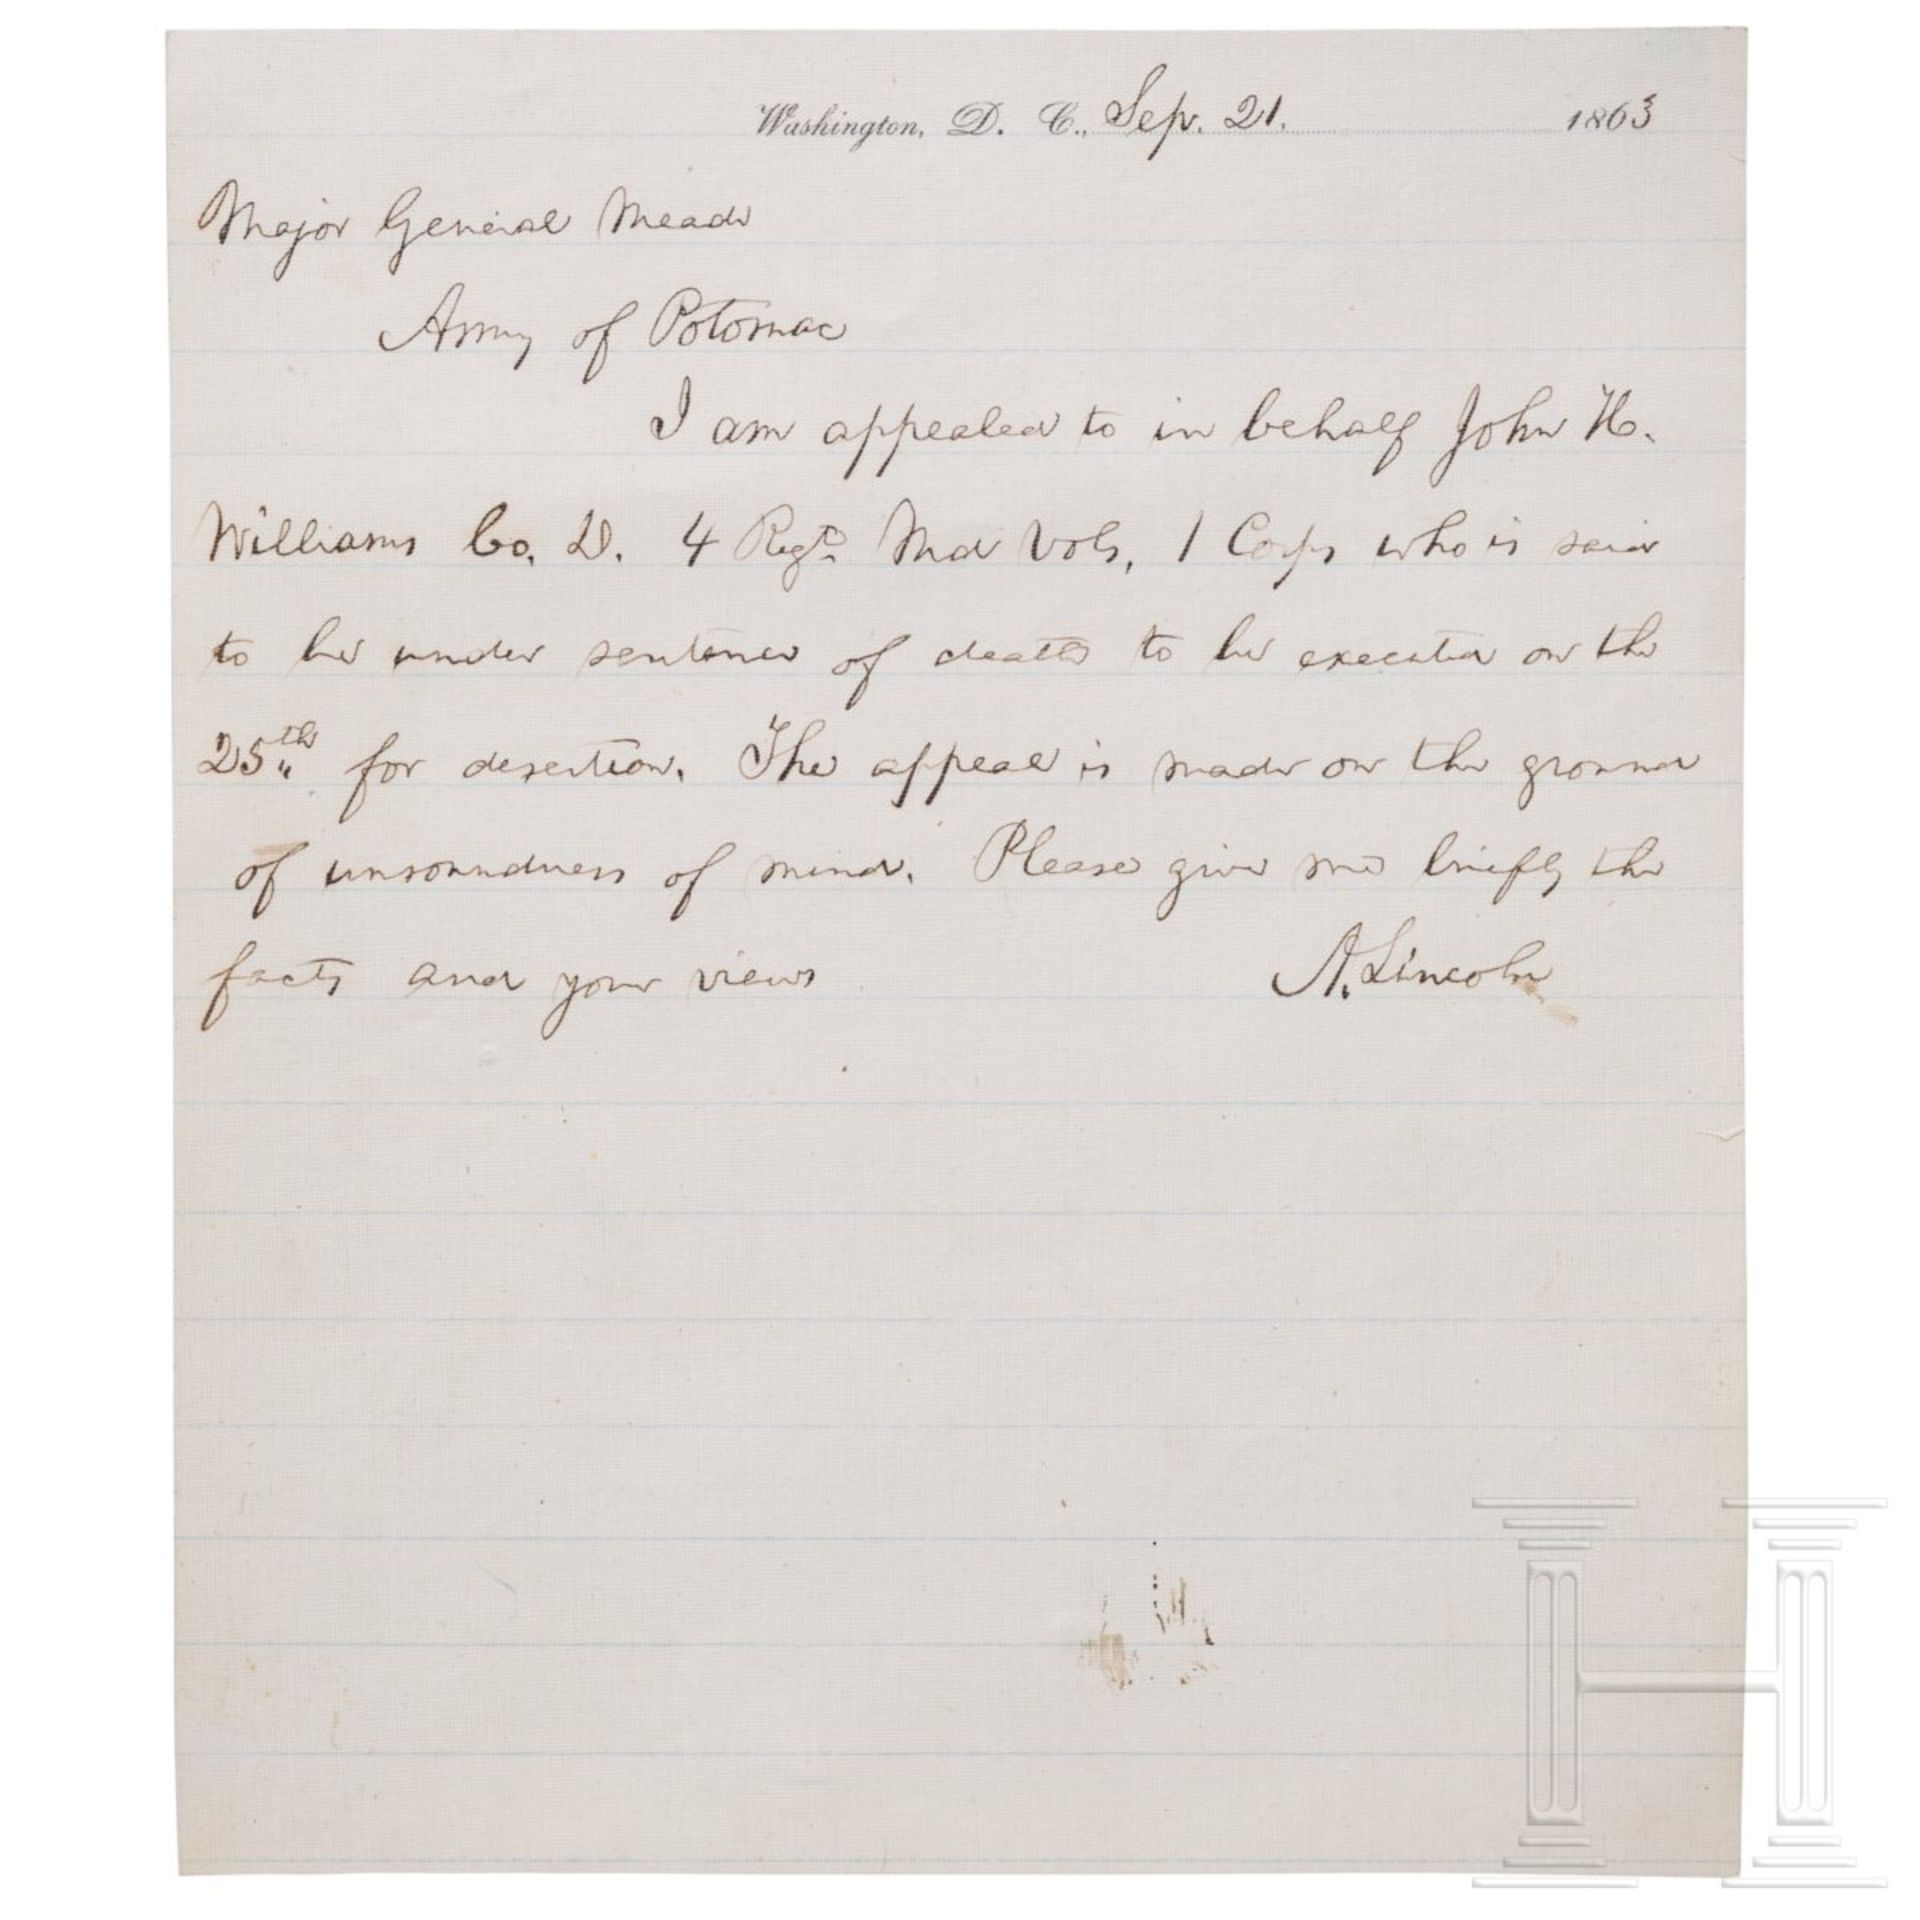 Washington, D. C., Sep. 21. 1863
Major General Meade
Army of Potomac
I am appealed to in behalf John H.
Williams Co. D. 4 Regt. Md Vols, 1 Corps who is said
to be under sentence of death to be executed on the
25th for desertion. The appeal is made on the ground
of unsoundness of mind. Please give me briefly the
facts and your views
A. Lincoln